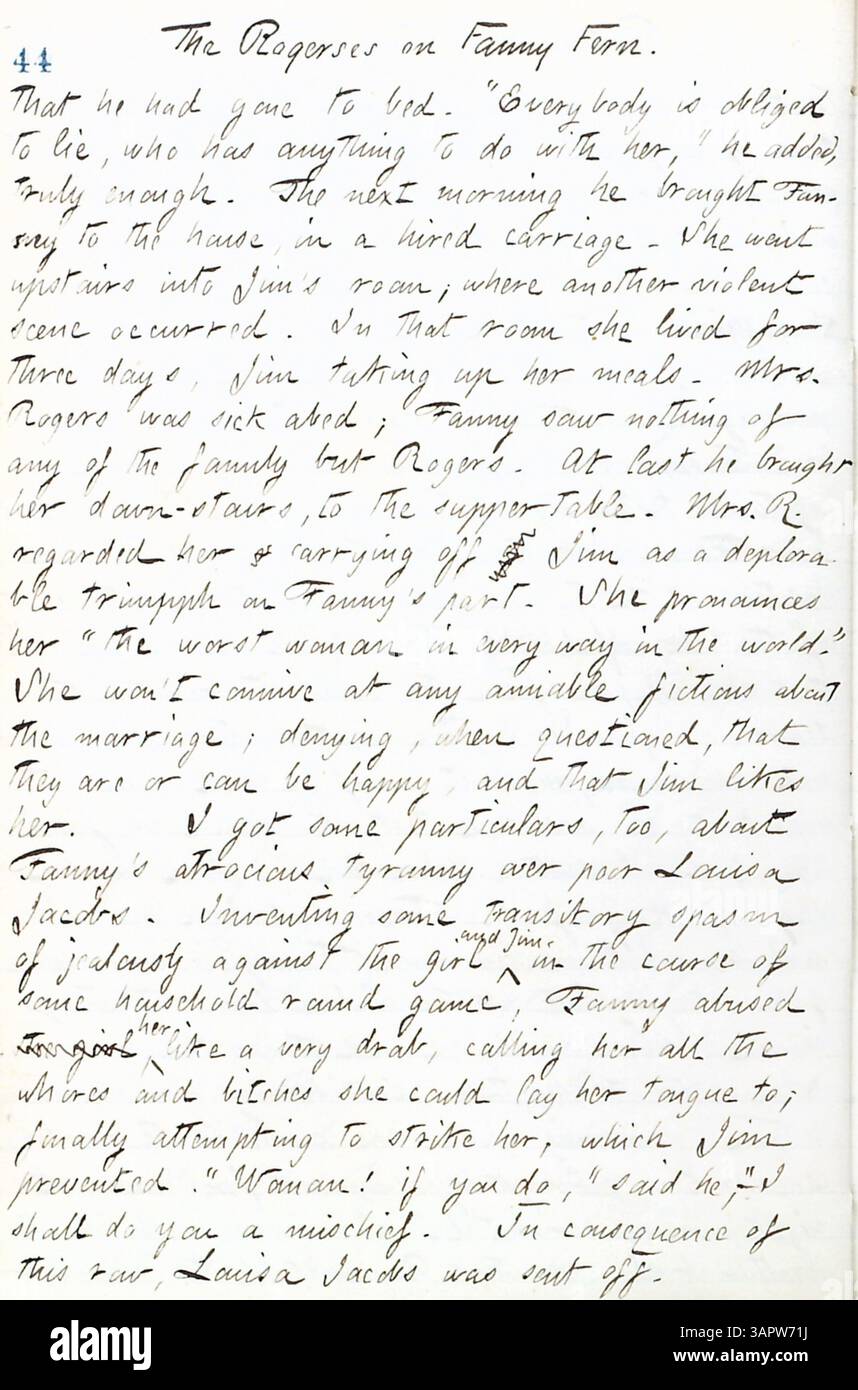 44
The Rogerses on Fanny Fern.
that he had gone to bed. "Everybody is obliged
to lie, who has anything to do with her," he added,
truly enough. The next morning he brought Fan-
ny to the house, in a hired carriage. She went
upstairs into Jim's room; where another violent
scene occurred. In that room she lived for
three days, Jim taking up her meals. Mrs.
Rogers was sick abed; Fanny saw nothing of
any of the family but Rogers. At last he brought
her down-stairs, to the supper table. Mrs. R.
regarded her carrying off Jim as a deplora-
ble triumpph on Fanny's part. She pronounces
her "the worst woman in every way in the world."
She won't connive at any amiable fictions about
the marriage; denying, when questioned, that
they are or can be happy, and that Jim likes
her. I got some particulars, too, about
Fanny's atrocious tyranny over poor Louisa
Jacobs. Inventing some transitory spasm
of jealousy against the girl and Jim in the course of
some household round game, Fanny abused
her like a very drab, calling her all the
whores and bitches she could lay her tongue to;
finally attempting to strike her, which Jim
prevented. "Woman! if you do," said he, "I
shall do you a mischief. In consequence of
this row, Louisa Jacobs was sent off.
alamy
Image ID: 3APW71J
www.alamy.com